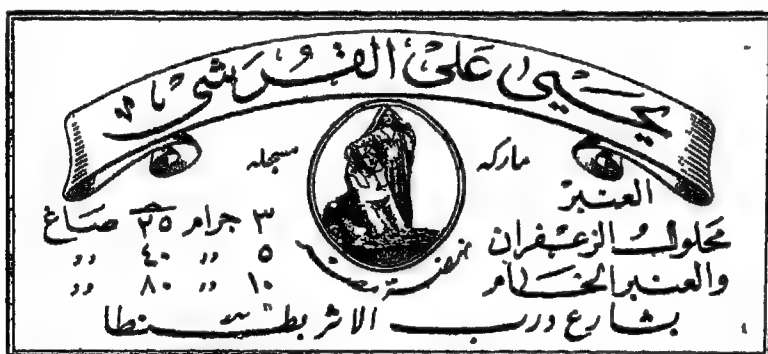 يحيى على القرشى
ماركه مسجله
نهضة مصر
العنبر
محلول الزعفران
والعنبر الخام
٣ جرام ٢٥ صاغ
٥ " ٤٠ "
١٠ " ٨٠ "
بشارع درب الاثر بطنطا